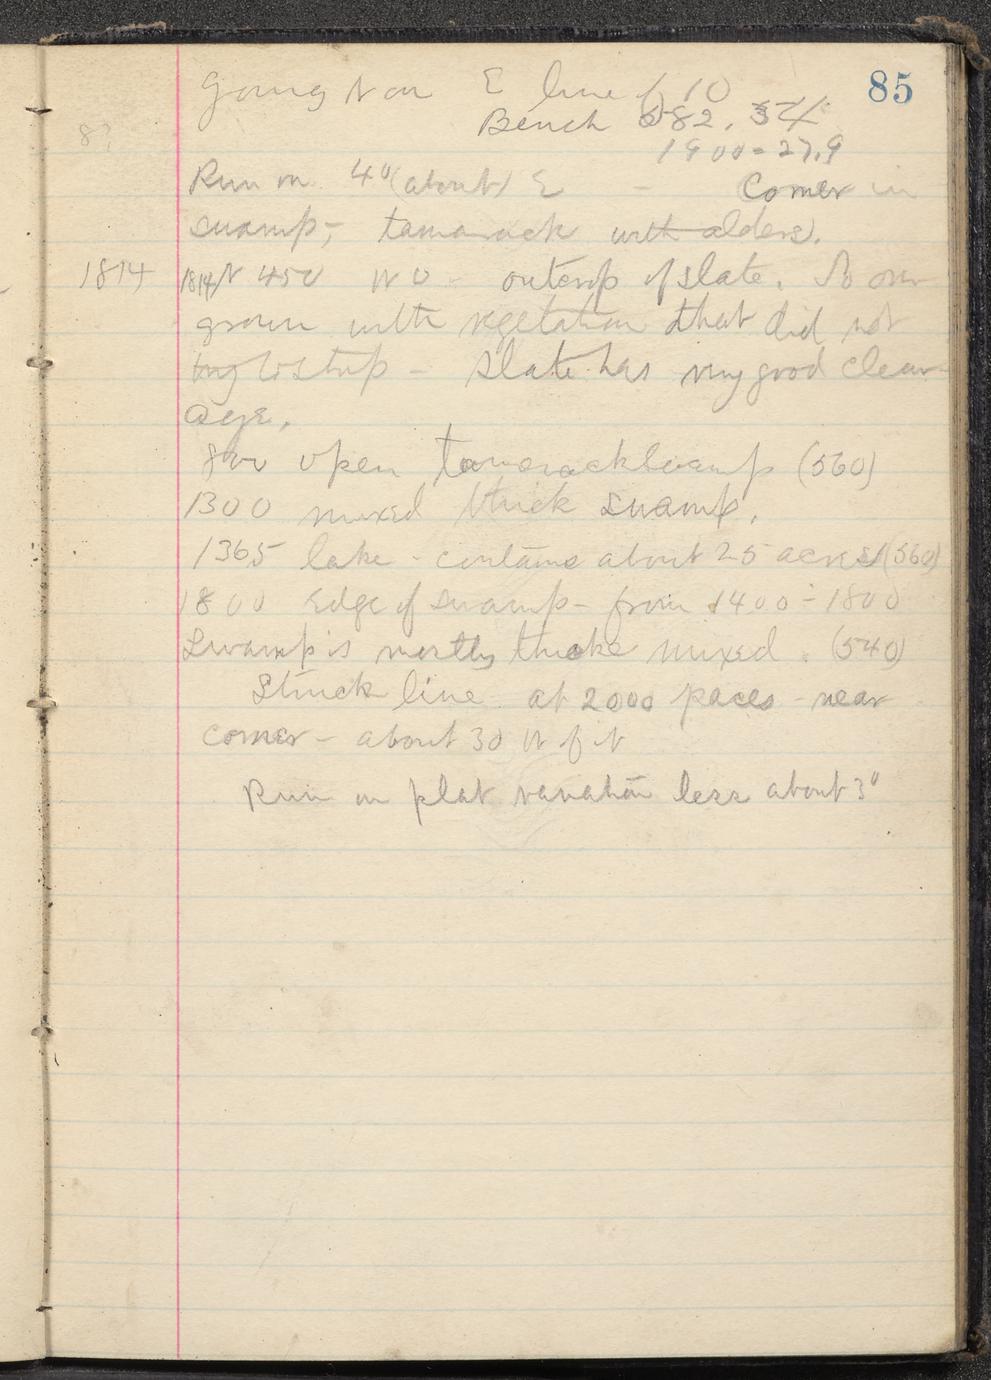 85
Going N on E line of 10
Bench 582.54
1900 = 27.9
Run on 4° (about) E - Corner in
swamp, tamarack with alders.
1814 1814 N 450 W 0 - outcrop of slate. So over
grown with vegetation that did not
try to strip - Slate has very good cleav-
age.
800 open tamarack swamp (560)
1300 mixed thick swamp.
1365 lake - contains about 25 acres (560)
1800 Edge of swamp - from 1400 - 1800
Swamp is mostly thicke mixed. (540)
Struck line at 2000 paces - near
corner - about 30 W of it
Run on plat variation less about 3°